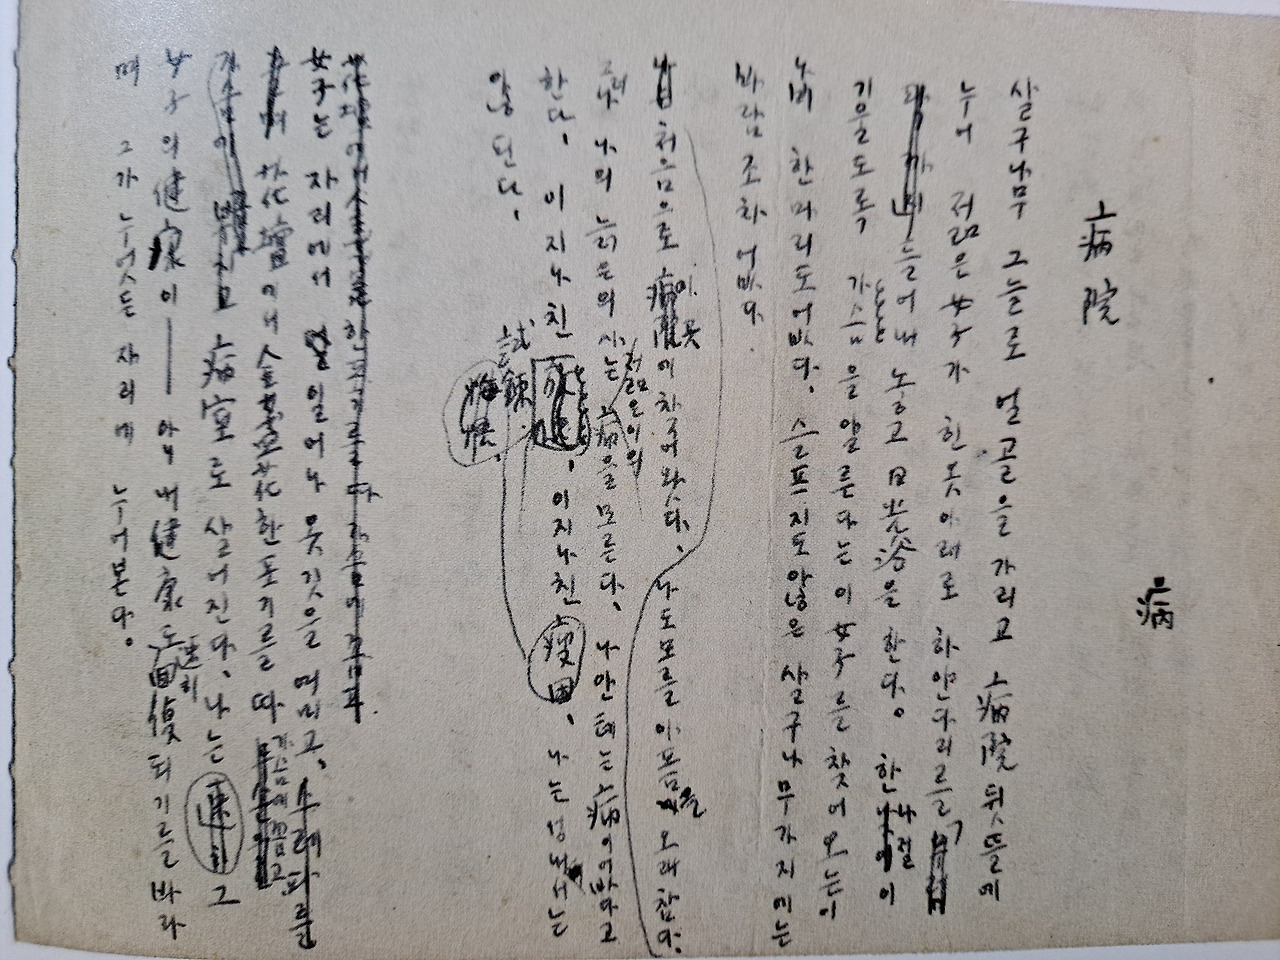 病
病院
살구나무 그늘로 얼골을 가리고 病院 뒷뜰에
누어 젊은 女子가 힌옷 아래로 하얀다리를
들어내 놓고 日光浴을 한다。 한나절이
기울도록 가슴을 알른다는 이 女子를 찾어 오는 이
나비 한마리도 없다。 슬프지도 않은 살구나무가지에는
바람조차 어없다。
처음으로 이 곳에 찾어 왔다、 나도 모를 아픔을 오래 참다
그러나 나의 늙은 의사는 젊은이의 病을 모른다、 나안테는 病이 없다고
한다、 이 지나친 試鍊、 이 지나친 疲困、 나는 성내서는
않된다。
女子는 자리에서 일어나 옷깃을 여미고、
花壇에서 金盞花 한포기를 따 가슴에 꼽고
病室로 살어진다、 나는 그
女子의 健康이―― 아니 내 健康도 速히 回復되기를 바라
며 그가 누엇든 자리에 누어본다。